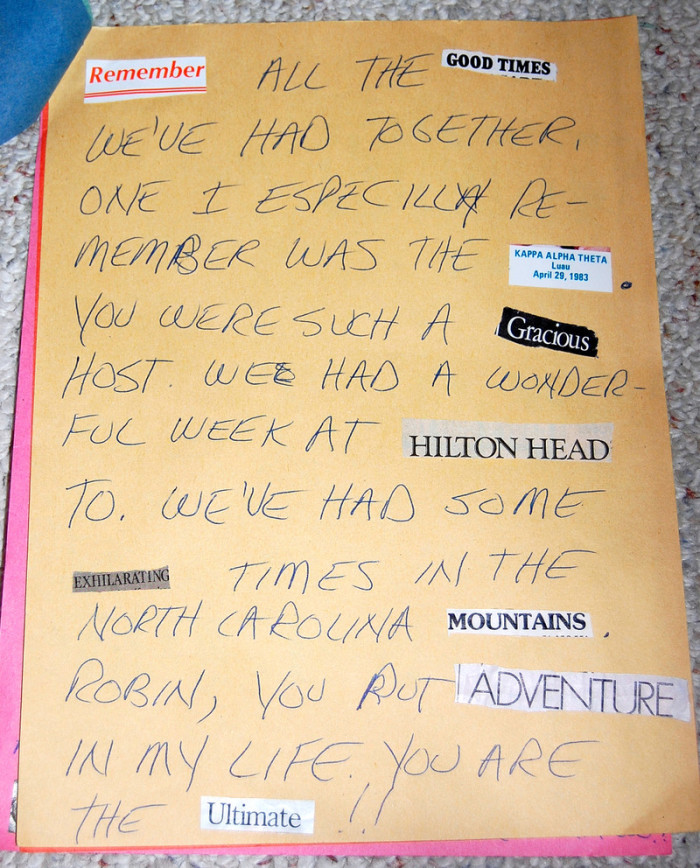 Remember ALL THE GOOD TIMES
WE'VE HAD TOGETHER.
ONE I ESPECILLY RE-
MEMBER WAS THE KAPPA ALPHA THETA
Luau
April 29, 1983 .
YOU WERE SUCH A Gracious
HOST. WE HAD A WONDER-
FUL WEEK AT HILTON HEAD
TO. WE'VE HAD SOME
EXHILARATING TIMES IN THE
NORTH CAROLINA MOUNTAINS .
ROBIN, YOU PUT ADVENTURE
IN MY LIFE. YOU ARE
THE Ultimate !!